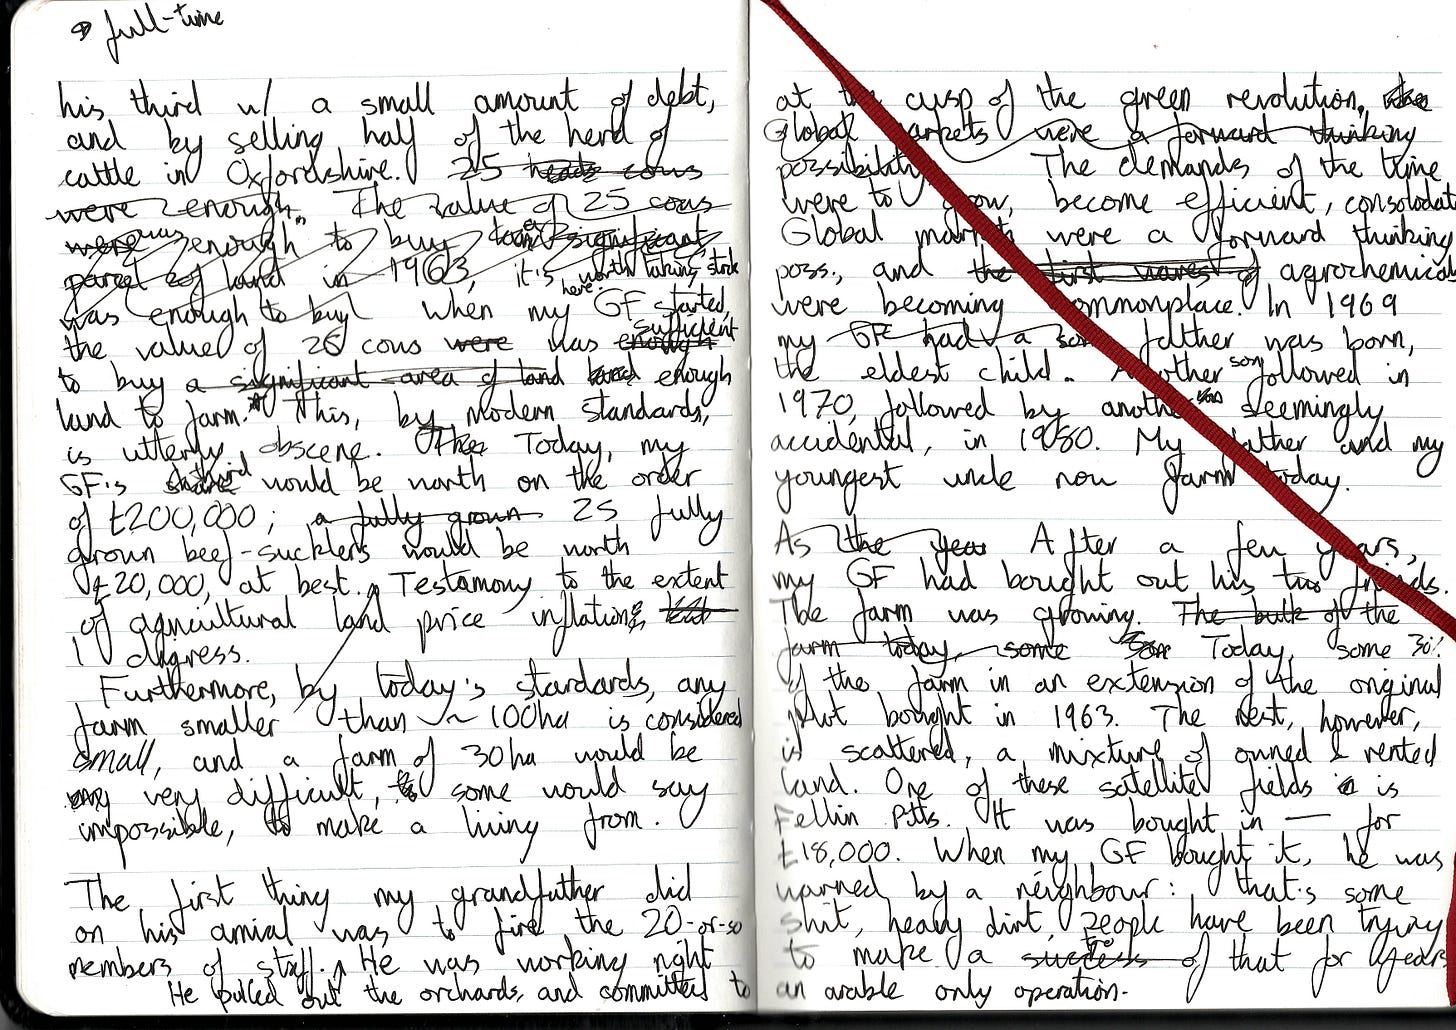 full-time
his third w/ a small amount of debt,
and by selling half of the herd of
cattle in Oxfordshire. 25 heads cows
were enough. The value of 25 cows
were was enough to buy significant
parcel of land in 1963, it's worth taking stock
was enough to buy here. When my GF started,
the value of 26 cows were was enough sufficient
to buy a significant area of land enough
land to farm. This, by modern standards,
is utterly obscene. Today, my
GF's share third would be worth on the order
of £200,000; a fully grown 25 fully
grown beef-sucklers would be worth
£20,000, at best. Testamony to the extent
of agricultural land price inflation,
I digress.
Furthermore, by today's standards, any
farm smaller than ~ 100ha is considered
small, and a farm of 30ha would be
very difficult, some would say
impossible, to make a living from.
The first thing my grandfather did
on his arrival was to fire the 20-or-so
members of staff. He was working right
He pulled out the orchards, and committed to
at the cusp of the green revolution,
Global markets were a forward thinking
possibility The demands of the time
were to grow, become efficient, consolodate
Global markets were a forward thinking
poss., and the first waves of agrochemicals
were becoming commonplace. In 1969
my GF had a son father was born,
the eldest child. Another son followed in
1970, followed by another son seemingly
accidental, in 1980. My father and my
youngest uncle now farm today.
As the years After a few years,
my GF had bought out his two friends.
The farm was growing. The bulk of the
farm today, some Today, some 30%
of the farm in an extension of the original
plot bought in 1963. The rest, however,
is scattered, a mixture of owned & rented
land. One of these satellite fields is
Fellin Pitts. It was bought in — for
£18,000. When my GF bought it, he was
warned by a neighbour: that's some
shit, heavy dirt, people have been trying
to make a success of that for years
an arable only operation.